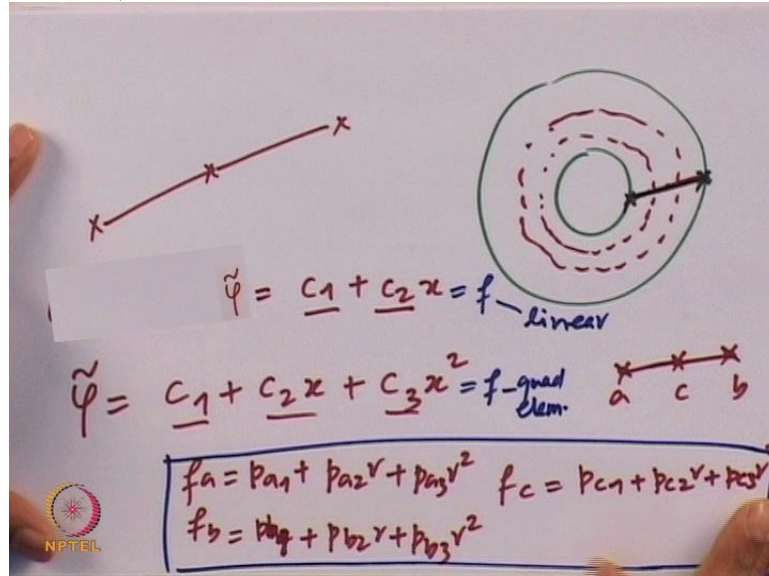 φ̃ = c1 + c2x = f – linear
φ̃ = c1 + c2x + c3x² = f – quad elem.
a c b
fa = pa1 + pa2r + pa3r² fc = pc1 + pc2r + pc3r
fb = + pb2r + pb3r²
NPTEL